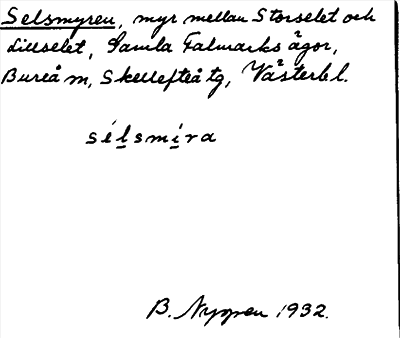 Selsmyren, myr mellan Storselet och
Lillselet, Gamla Falmarks ägor,
Bureå m, Skellefteå tg, Västerb l.
sélsmíra
B. Nygren 1932.